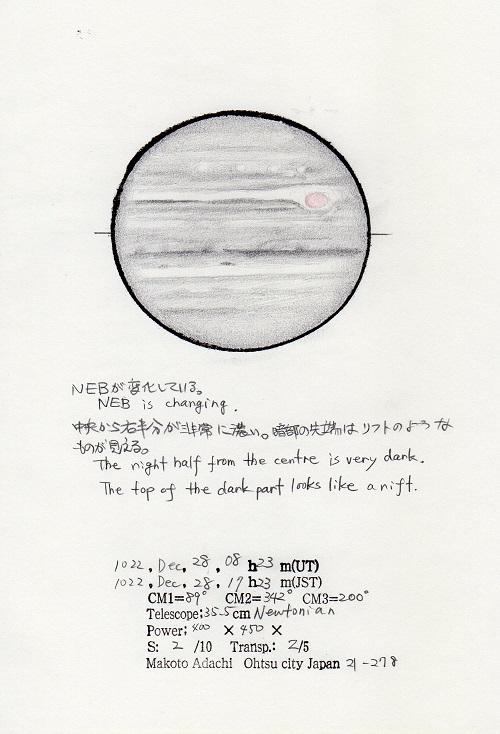 NEBが変化している。
NEB is changing.
中央から右半分が非常に濃い。暗部の先端はリフトのような
ものが見える。
The right half from the centre is very dark.
The top of the dark part looks like a rift.
1022, Dec, 28, 08 h23 m(UT)
1022, Dec, 28, 17 h23 m(JST)
CM1=89° CM2=342° CM3=200°
Telescope:35.5cm Newtonian
Power; 400 × 450 ×
S: 2 /10 Transp.: 2/5
Makoto Adachi Ohtsu city Japan 21-278